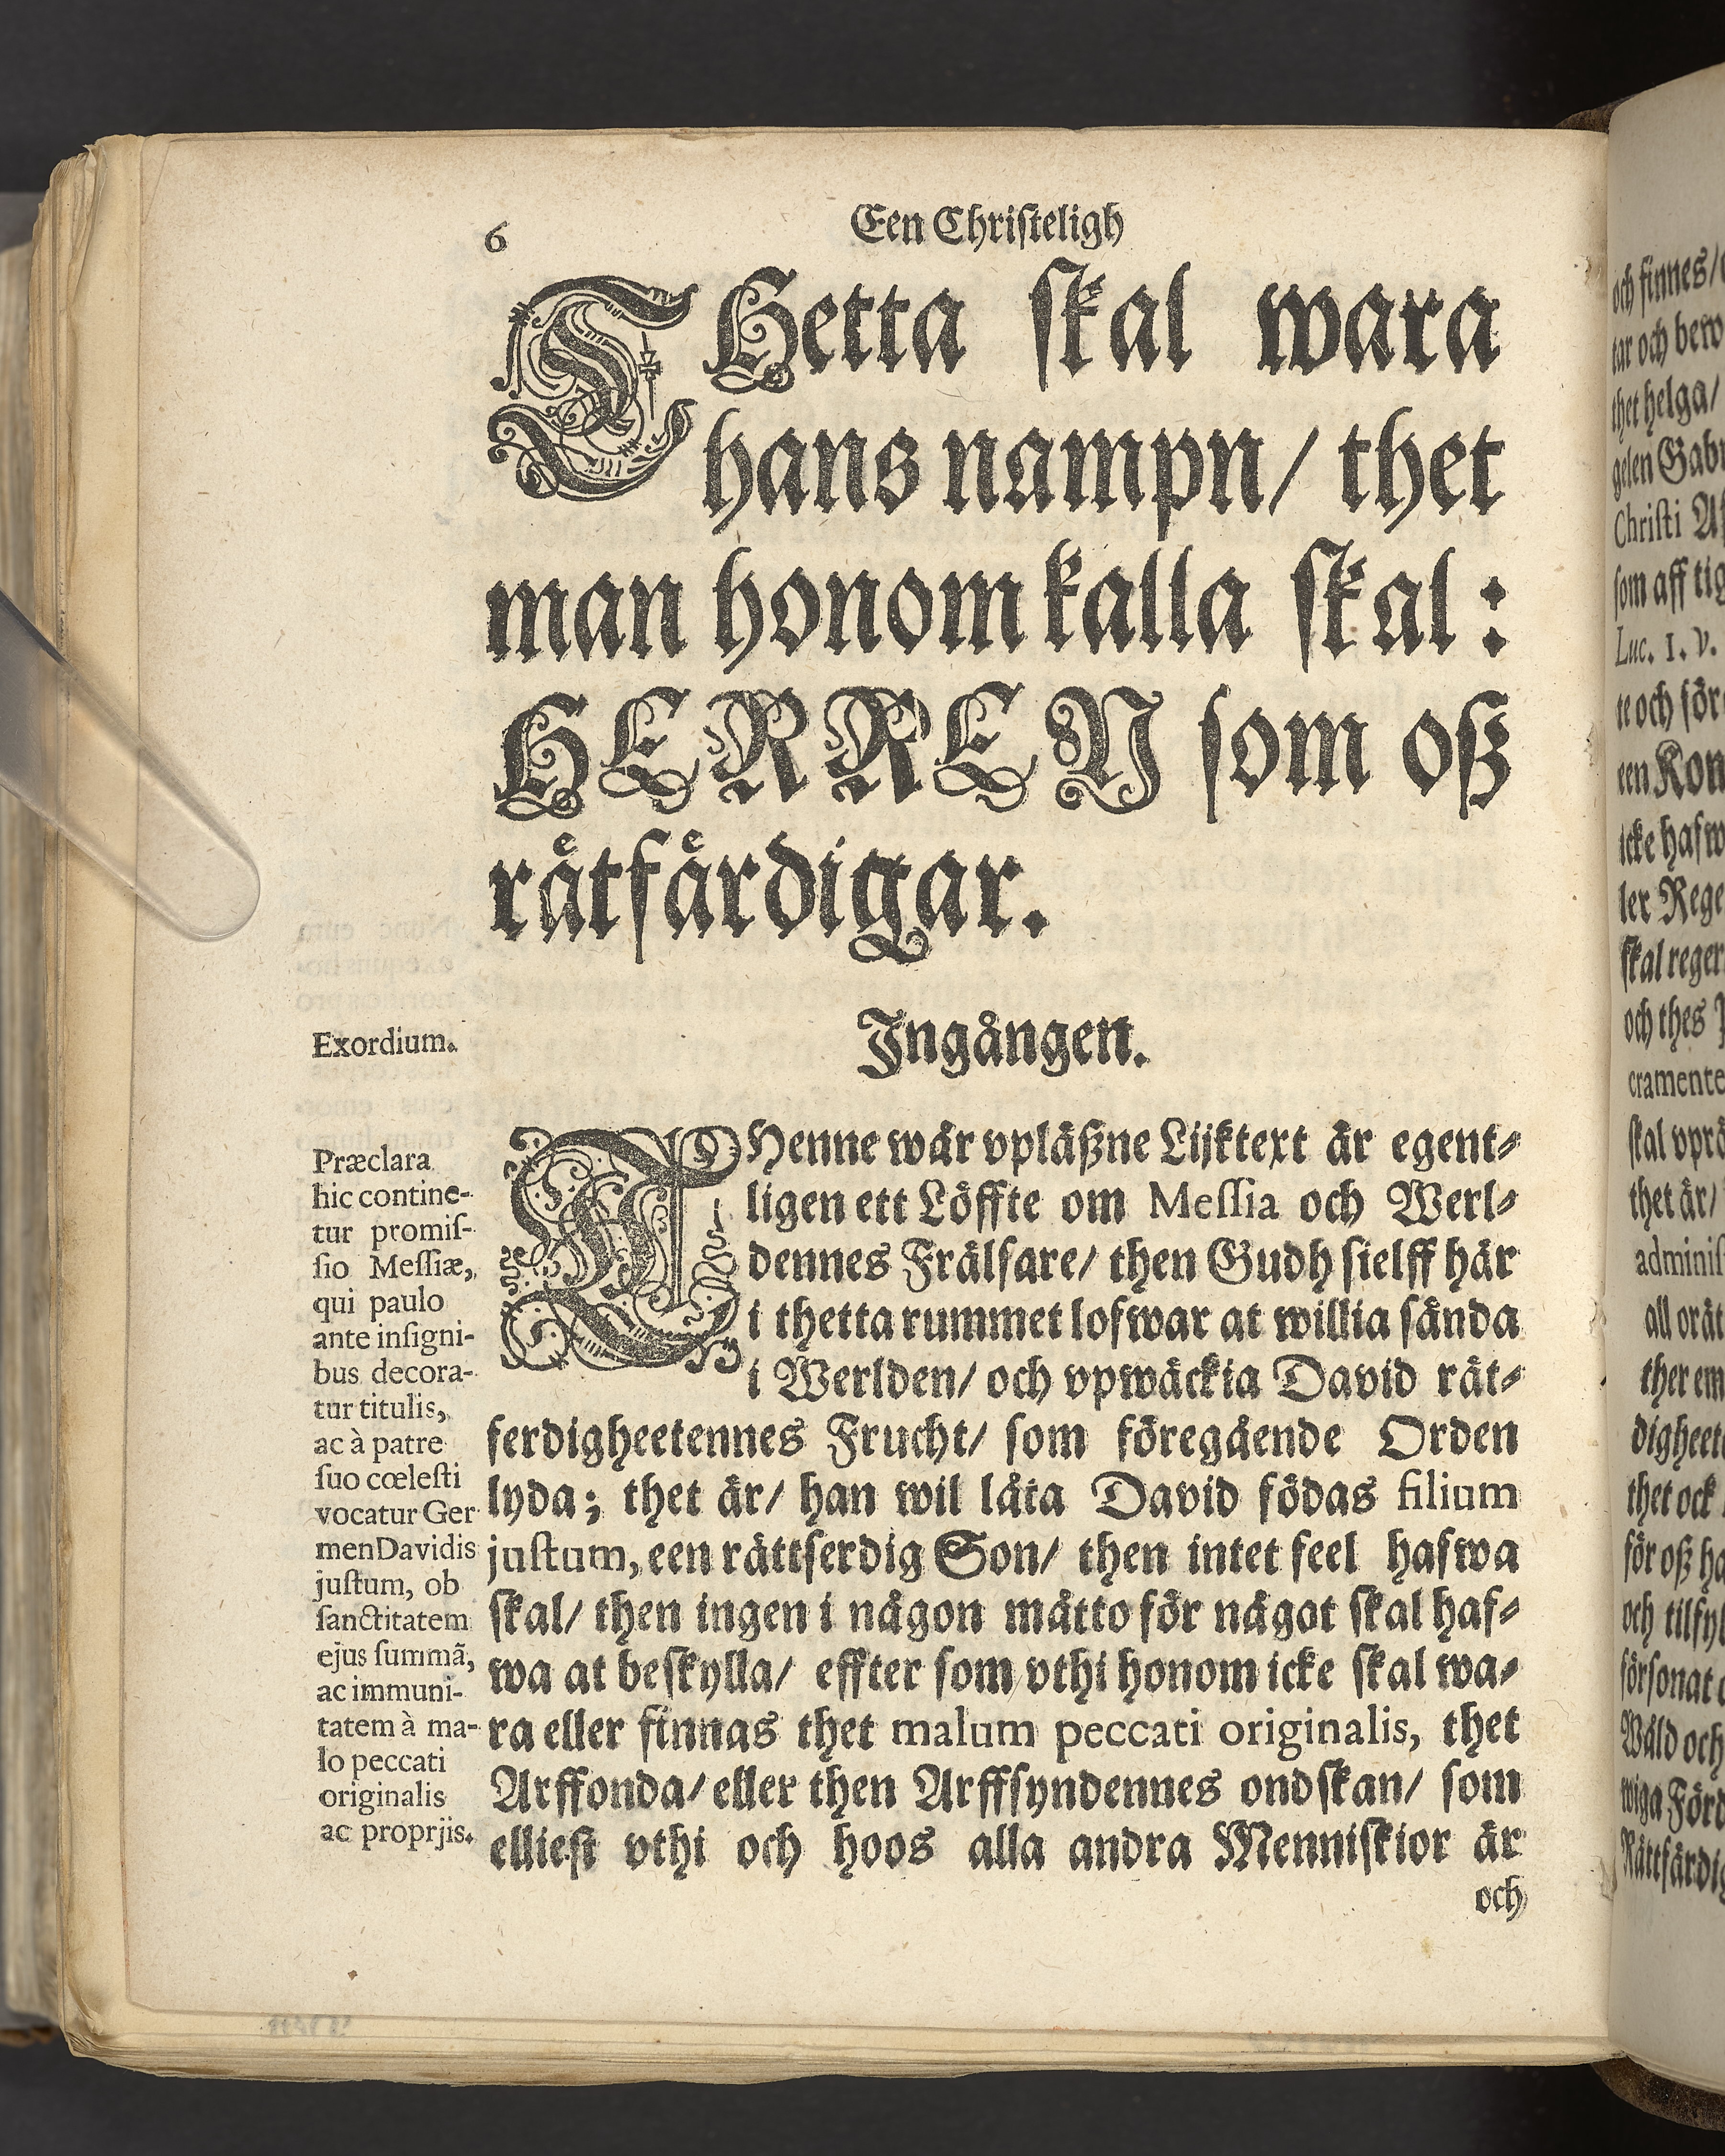 6
Een Christeligh
THetta skal wara
hans nampn/ thet
man honom kalla skal:
HERREN som oß
rätfärdigar.
Exordium.
Ingången.
Præclara
hic contine-
tur promis-
sio Messiæ,
qui paulo
ante insigni-
bus decora-
tur titulis,
ac à patre
suo cœlesti
vocatur Ger
men Davidis
justum, ob
sanctitatem
ejus summã,
ac immuni-
tatem à ma-
lo peccati
originalis
ac proprjis.
THenne wår vpläßne Lijktext är egent-
ligen ett Löffte om Messia och Werl-
dennes Frälsare/ then Gudh sielff här
i thetta rummet lofwar at willia sända
i Werlden/ och vpwäckia David rät-
ferdigheetennes Frucht/ som föregående Orden
lyda; thet är/ han wil låta David födas filium
justum, een rättferdig Son/ then intet feel hafwa
skal/ then ingen i någon måtto för något skal haf-
wa at beskylla/ effter som vthi honom icke skal wa-
ra eller finnas thet malum peccati originalis, thet
Arffonda/ eller then Arffsyndennes ondskan/ som
elliest vthi och hoos alla andra Menniskior är
och
och finnes/
tar och bew
thet helga/
gelen Gabr
Christi
som aff tig
Luc. 1. v.
te och för
een Kon
icke hafw
ler Rege
skal reger
och thes
cramente
skal vprä
thet är/
adminis
all orät
ther em
digheet
thet ock
för oß ha
och tilfyl
försonat
Wåld och
wiga Förd
Rättfärdig